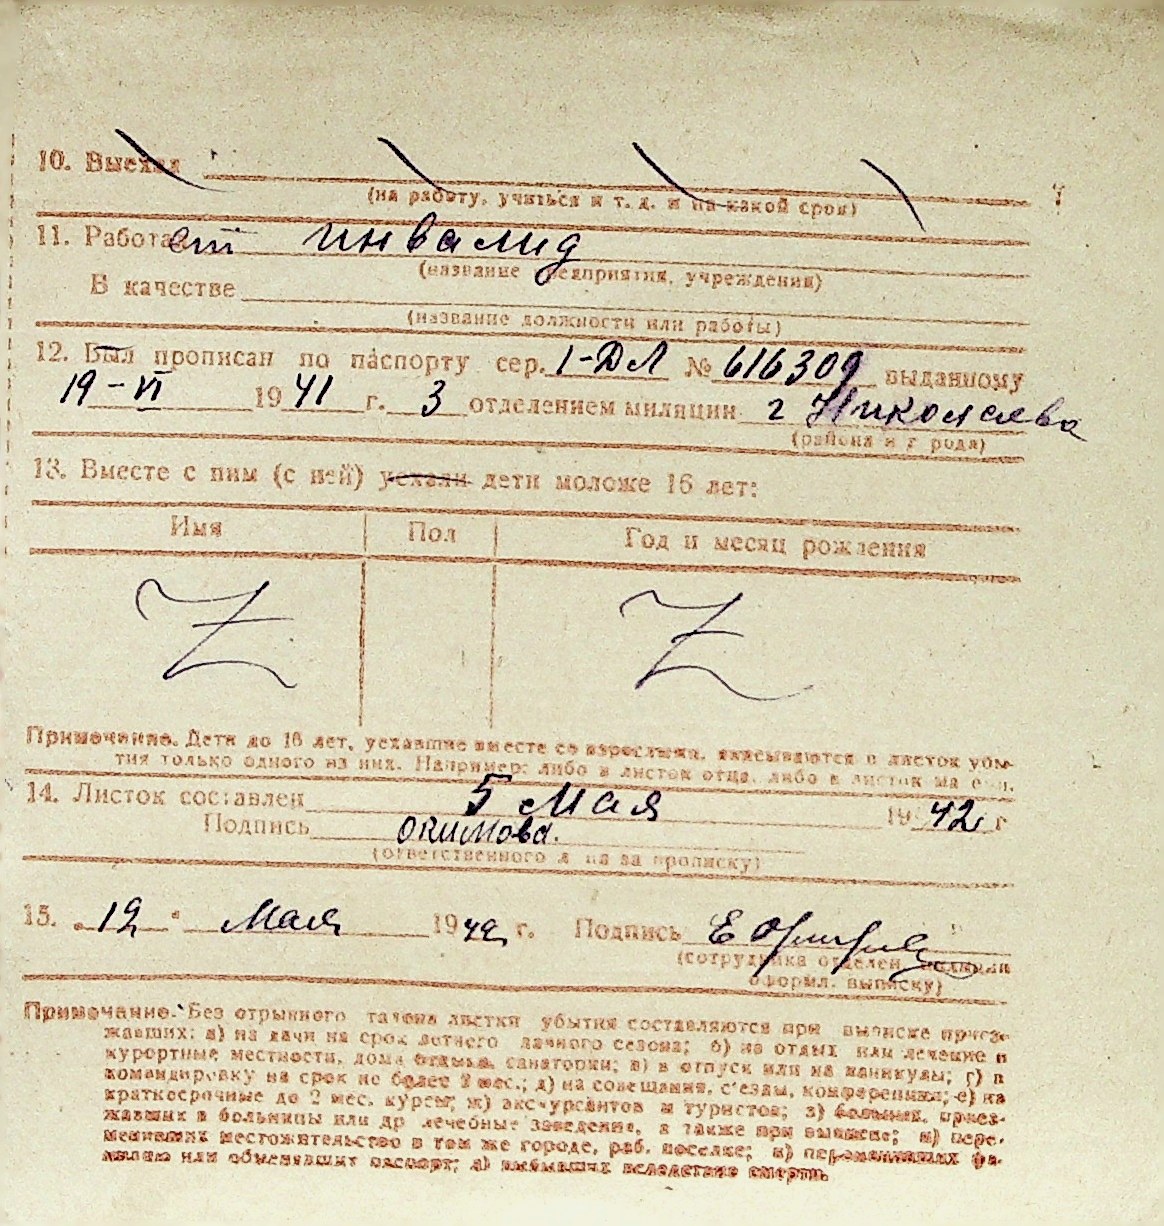 10. Выехал
(на работу, учиться и т. д. и на какой срок)
11. Работает инвалид
(название предприятия, учреждения)
В качестве
(название должности или работы)
12. Был прописан по паспорту сер. I-ДЛ № 616309 выданному
19-VI 1941 г. 3 отделением милиции г Николаева
(района и города)
13. Вместе с ним (с ней) уехали дети моложе 16 лет:
Имя Пол Год и месяц рождения
Z Z
Примечание. Дети до 16 лет, уехавшие вместе со взрослыми, вписываются в листок убы-
тия только одного из них. Например: либо в листок отца, либо в листок матери.
14. Листок составлен 5 Мая 1942 г
Подпись Окимова.
(ответственного лица за прописку)
15. „12" Мая 1942 г. Подпись Е
(сотрудника отделен. милиции
оформл. выписку)
Примечание. Без отрывного талона листки убытия составляются при выписке приез-
жавших: а) на дачи на срок летнего дачного сезона; б) на отдых или лечение в
курортные местности, дома отдыха, санатории; в) в отпуск или на каникулы; г) в
командировку на срок не более 2 мес.; д) на совещания, с'езды, конференции; е) на
краткосрочные до 2 мес. курсы; ж) экскурсантов и туристов; з) больных, приез-
жавших в больницы или др лечебные заведения, а также при выписке; и) пере-
менивших местожительство в том же городе, раб. поселке; к) переменивших фа-
милию или обменявших паспорт; л) выбывших вследствие смерти.